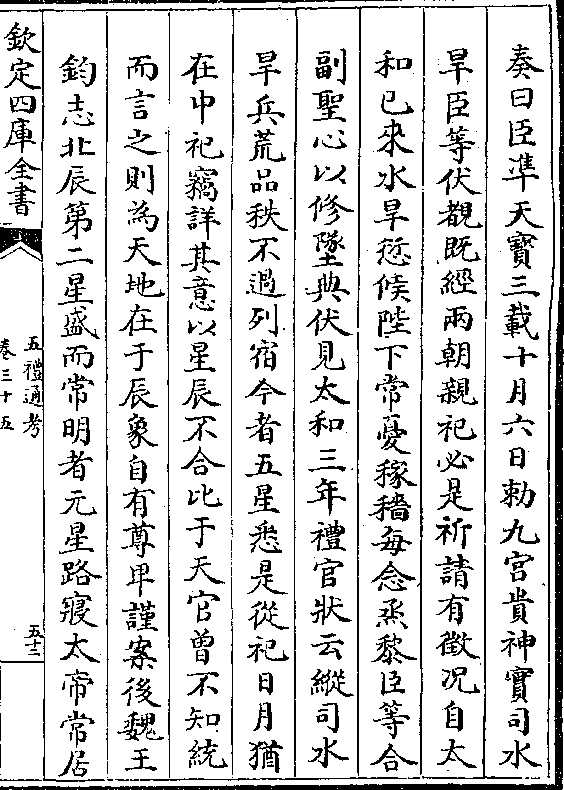 奏曰臣準天寶三載十月六日勅九宮貴神實司水
旱臣等伏覩既經兩朝親祀必是祈請有徵况自太
和已來水旱愆候陛下常憂稼穡每念烝黎臣等合
副聖心以修墜典伏見太和三年禮官狀云縱司水
旱兵荒品秩不過列宿今者五星悉是從祀日月猶
在中祀竊詳其意以星辰不合比于天官曾不知統
而言之則為天地在于辰象自有尊卑謹案後魏王
鈞志北辰第二星盛而常明者元星路寢太帝常居
欽定四庫全書
五禮通考
卷三十五
五十二